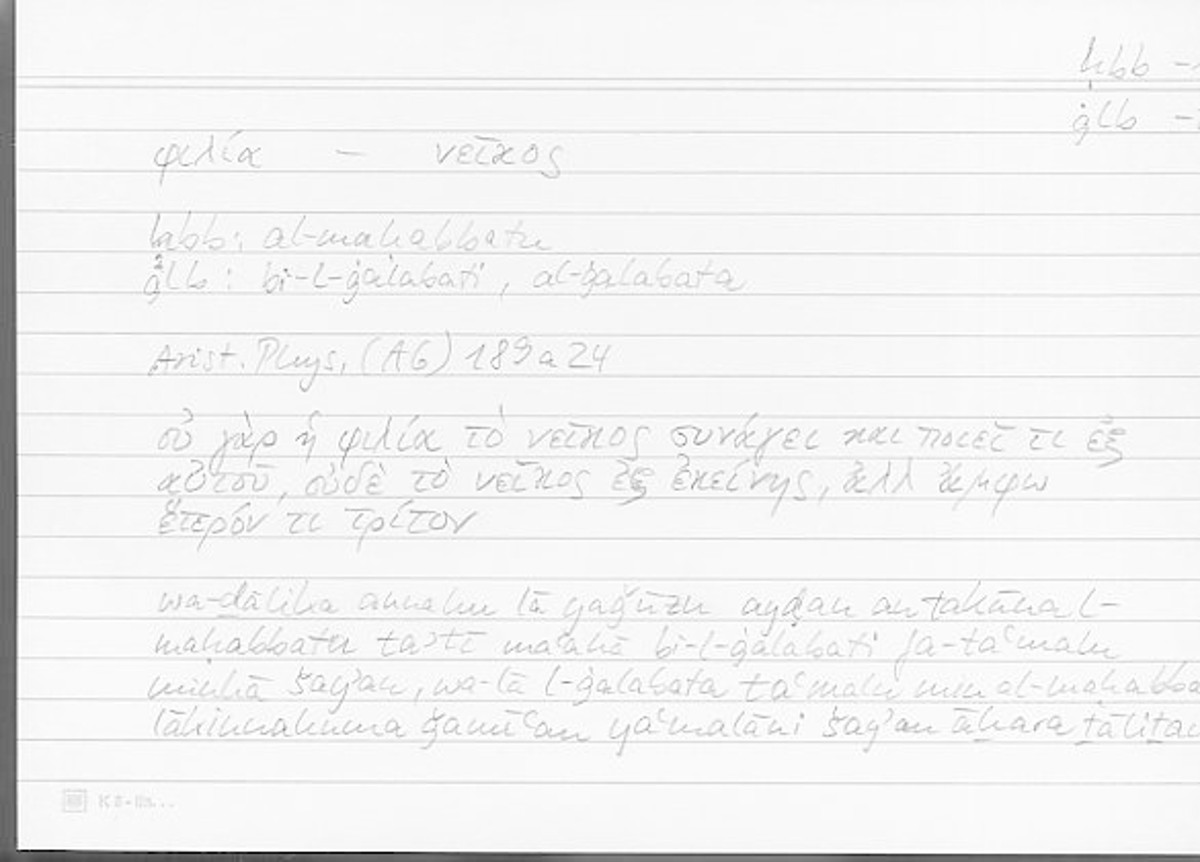 ḥbb -
ġlb -
φιλία – νεῖκος
ḥbb: al-maḥabbatu
ġlb: bi-l-ġalabati, al-ġalabata
Arist. Phys. (A6) 189a24
οὐ γὰρ ἡ φιλία τὸ νεῖκος συνάγει και ποιεῖ τι ἐξ
αὐτοῦ, οὐδὲ τὸ νεῖκος ἐξ ἐκείνης, ἀλλ ἄμφω
ἕτερόν τι τρίτον
wa-ḏālika annahu lā yaǧūzu ayḍan an takūna l-
maḥabbatu taʾtī maʿahā bi-l-ġalabati fa-taʿmalu
minhā šayʾan, wa-lā l-ġalabata taʿmalu min al-maḥabba
lākinnahumā ǧamīʿan yaʿmalāni šayʾan āḫara ṯāliṯan